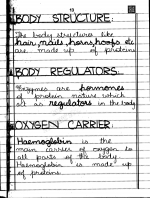 BODY STRUCTURE:
The body structures like
hair, nails, horns, hoofs etc
are made up of proteins
BODY REGULATORS:
Enzymes are hormones
of protein nature which
act as regulators in the body
OXYGEN CARRIER:
Haemoglobin is the
main carrier of oxygen to
all parts of the body.
Haemoglobin is made up
of proteins.